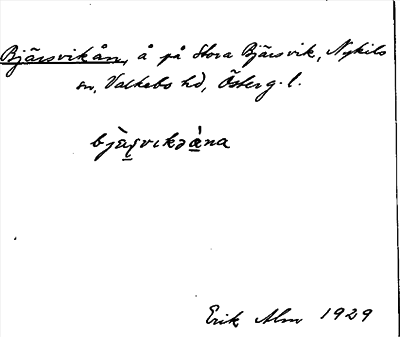 Bjärsvikån, å på Stora Bjärsvik, Nykils
sn, Valkebo hd, Österg. l.
bjärvikəàna
Erik Alm 1929